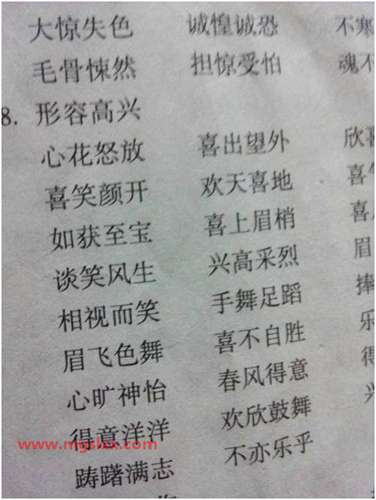 大惊失色 诚惶诚恐 不寒
毛骨悚然 担惊受怕 魂不
8. 形容高兴
心花怒放 喜出望外 欣喜
喜笑颜开 欢天喜地 喜气
如获至宝 喜上眉梢 喜
谈笑风生 兴高采烈 眉
相视而笑 手舞足蹈 捧
眉飞色舞 喜不自胜 乐
心旷神怡 春风得意 得
得意洋洋 欢欣鼓舞
踌躇满志 不亦乐乎
www.mgslxx.com